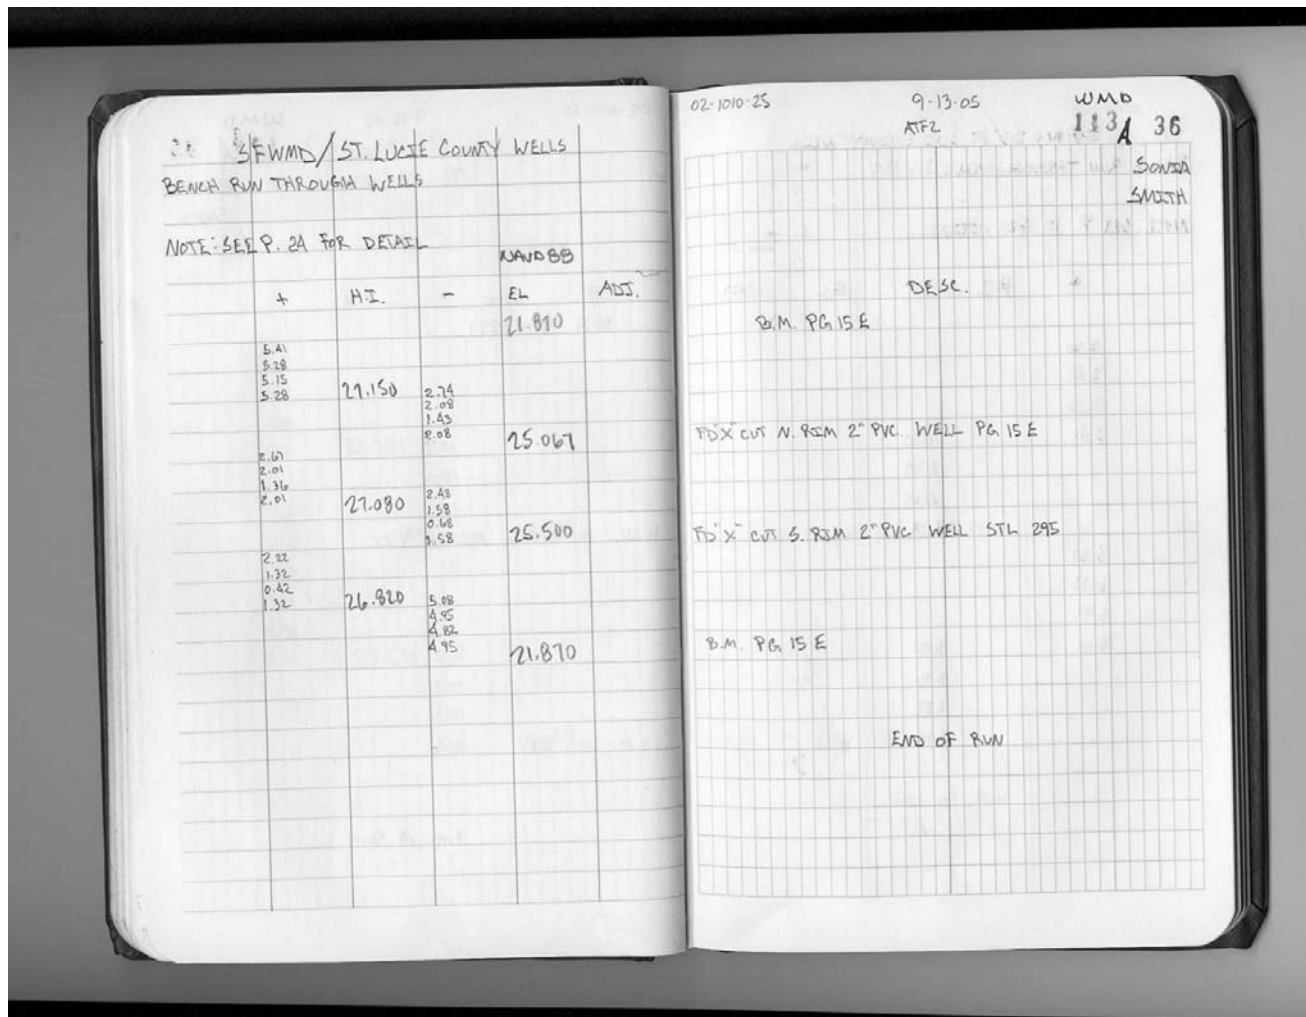 SFWMD/ST. LUCIE COUNTY WELLS
BENCH RUN THROUGH WELLS
NOTE: SEE P. 2A FOR DETAIL
NAVD88
+ H.I. - EL ADJ.
21.870
5.41
5.28
5.15
5.28 27.150 2.74
2.08
1.43
2.08 25.067
2.67
2.01
1.36
2.01 27.080 2.48
1.58
0.68
1.58 25.500
2.22
1.32
0.42
1.32 26.820 5.08
4.95
4.82
4.95 21.870
02-1010-25 9-13-05 WMD
ATFZ 113A 36
SONIA
SMITH
DESC.
B.M. PG 15 E
FD "X" CUT N. RIM 2" PVC. WELL PG 15 E
FD "X" CUT S. RIM 2" PVC WELL STL 295
B.M. PG 15 E
END OF RUN